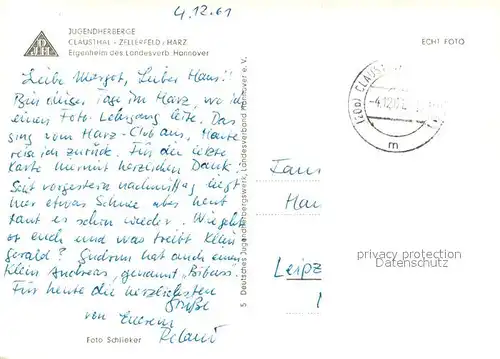 4.12.61
JUGENDHERBERGE
CLAUSTHAL - ZELLERFELD / HARZ
Eigenheim des Landesverb. Hannover
ECHT FOTO
DJH
Liebe Margot, Lieber Hans!!
Bin einige Tage im Harz, wo ich
einen Foto-Lehrgang leite. Das
ging vom Harz-Club aus. Heute
reise ich zurück. Für die letzte
Karte hiermit herzlichen Dank!
Seit vorgestern nachmittag liegt
hier etwas Schnee aber heut
taut es schon wieder. Wie geht
es euch und was treibt Klein
Gerald? Gudrun hat auch einen
Klein Andreas, genannt „Bibuss".
Für heute die herzlichsten
Grüße
von Eurem
Foto Schlieker
5 Deutsches Jugendherbergswerk, Landesverband Hannover e. V.
(20b) CLAUST
-4.12.61
m
Fam
Ha
Leipz
privacy protection
Datenschutz